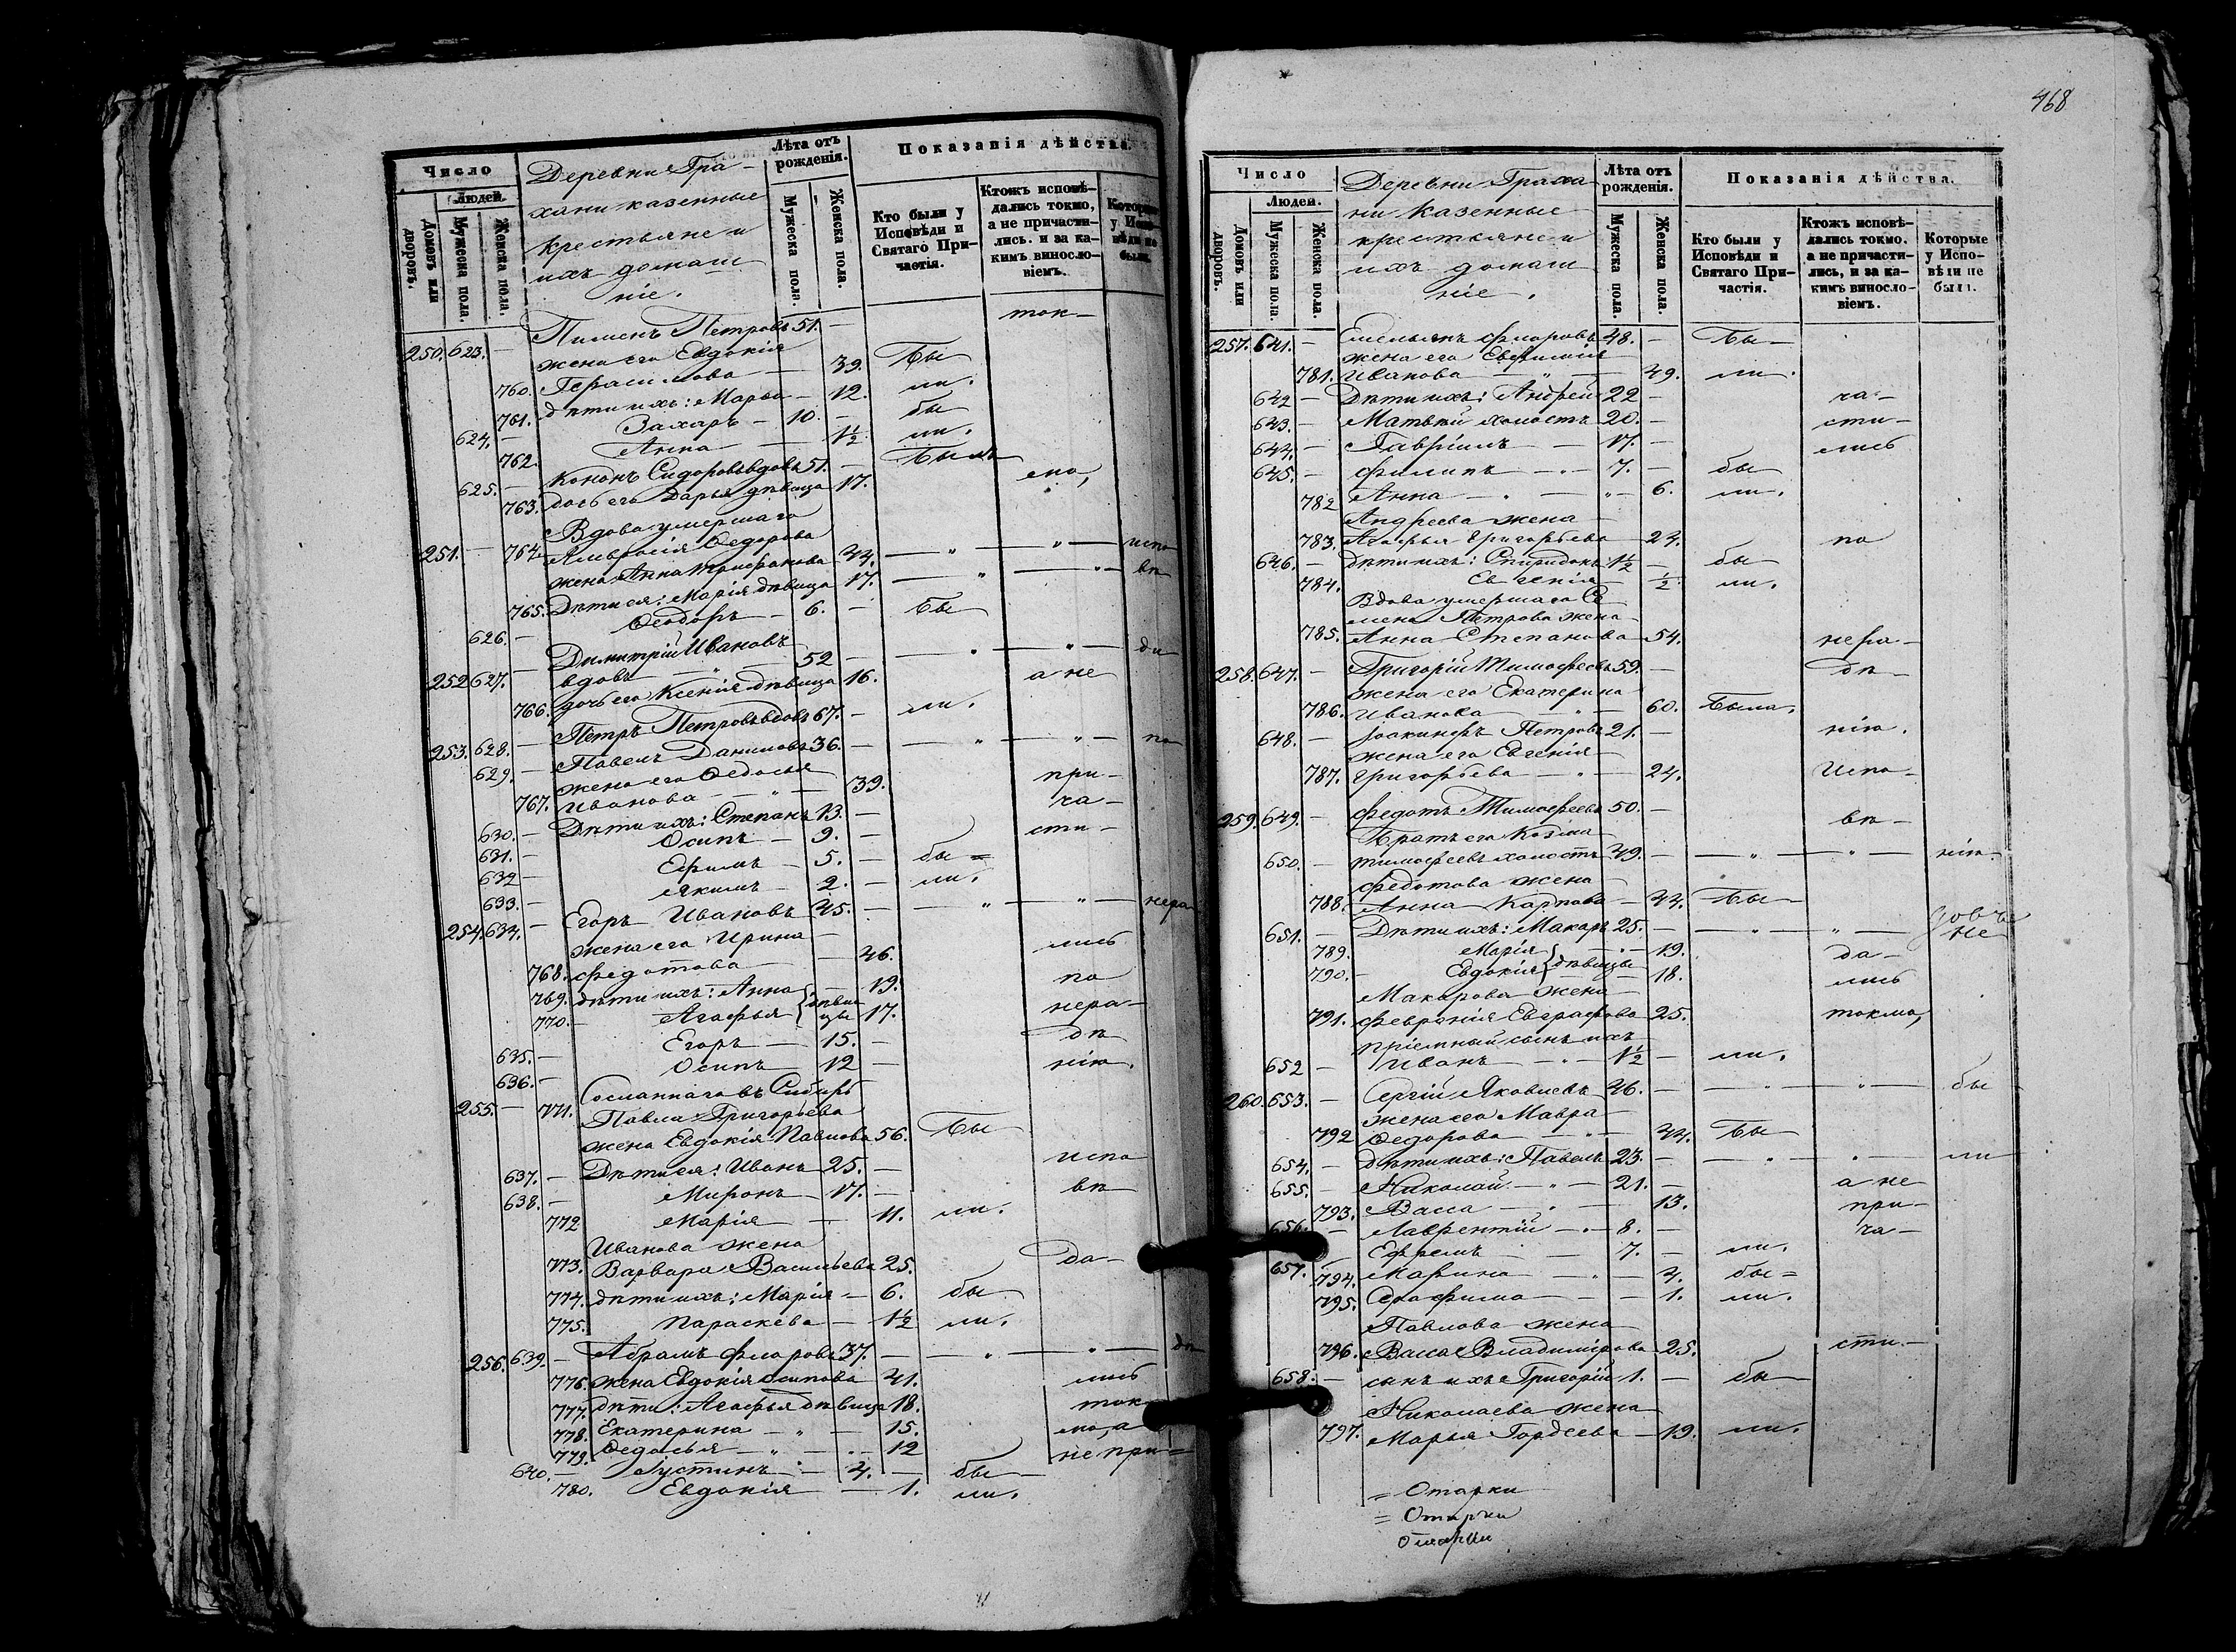 468
Число
Людей.
Домовъ или дворовъ.
Мужеска пола.
Женска пола.
Деревни Гра-
хани казенные
крестьяне и
ихъ домаш
ніе.
Лѣта отъ рожденія.
Мужеска пола.
Женска пола.
Показанія дѣйства.
Кто были у Исповѣди и Святаго При-частія.
Ктожъ исповѣ-дались токмо, а не причасти-лись. и за ка-кимъ винсло-віемъ.
Которые у Испо-вѣди не были.
ток-
250. 623. - Пименъ Петровъ 51. -
жена его Евдокія
760. Герасимова - 39. Бы
761. дѣти ихъ: Марья - 12. ли.
624. - Захаръ - 10. - бы
762. Анна - 1½ ли.
625. - Кононъ Сидоровъ вдовъ 51. - Былъ
763. дочь его Дарья дѣвица 17. мо,
Вдова умершаго
251. - 764. Амвросія Ѳедорова
жена Анна Трифонова 44. - " - " - испо
765. Дѣти ея: Марія дѣвица 17. - " - " - вѣ
626. - Ѳеодоръ - 6. - Бы
Димитрій Ивановъ
252. 627. - вдовъ - 52 - " - " - ди
766. дочь его Ксенія дѣвица 16. а не
253. 628. - Петръ Петровъ вдовъ 67. - ли.
629. - Павелъ Даниловъ 36. - " - " - по
жена его Ѳедосья
767. Иванова - " - 39. при-
630. - Дѣти ихъ: Степанъ 13. - ча-
631. - Осипъ - 9. - сти-
632. - Ефимъ - 5. - бы=
633. - Якимъ - 2. - ли.
254. 634. - Егоръ Ивановъ 45. - " - " - нера
жена его Ирина
768. Федотова - 46. лись
769. дѣти ихъ: Анна - 19. по
770. - Агафья } дѣвицы 17. нера-
635. - Егоръ - 15. - дѣ
636. - Осипъ 12 - нію.
Сосланнаго въ Сибирь
255. - 771. Павла Григорьева
жена Евдокія Павлова 56. Бы
637. - Дѣти ея: Иванъ 25. - испо
638. - Миронъ - 17. - вѣ
772 Марія - 11. ли.
Иванова жена
773. Варвара Васильева 25. да-
774. дѣти ихъ: Марія - 6. бы
775. Параскева - 1½ ли.
256. 639. - Абрамъ Флоровъ 37. - " - " - дѣ
776. жена Евдокія Осипова 41. лись
777. дѣти: Агафья дѣвица 18. ток-
778. Екатерина - " - 15. мо, а
779. Ѳедосья - " - 12 не при=
640. - Іустинъ - 4. - бы
780. Евдокія - 1. ли.
Число
Людей.
Домовъ или дворовъ.
Мужеска пола.
Женска пола.
Деревни Граха-
ни казенные
крестьяне и
ихъ домаш
ніе.
Лѣта отъ рожденія.
Мужеска пола.
Женска пола.
Показанія дѣйства.
Кто были у Исповѣди и Святаго При-частія.
Ктожъ исповѣ-дались токмо, а не причасти-лись, и за ка-кимъ винсло-віемъ.
Которые у Испо-вѣди не были.
257. 641. - Емельянъ Флоровъ 48. - Бы-
жена его Евфимія
781. Иванова - " - 49. ли.
642 - Дѣти ихъ: Андрей 22 - ча-
643. - Матвѣй холостъ 20. - сти-
644. - Гавріилъ - 17. - лись
645. - Филипъ - 7. - бы
782 Анна - 6. ли.
Андреева жена
783. Агафья Григорьева - 24. по
646. - дѣти ихъ: Спиридонъ 1½ - бы
784. Евгенія - ½ ли.
Вдова умершаго Се
мена Петрова жена
785. Анна Степанова - 54. нера-
258. 647. - Григорій Тимофеевъ 59. - дѣ-
жена его Екатерина
786. Иванова - " - 60. Была.
648. - Іоакинфъ Петровъ 21. - нію.
жена его Евгенія
787. Григорьева - " - 24. Испо-
259. 649. - Федотъ Тимофеевъ 50. - вѣ-
Братъ его Козма
650. - Тимофеевъ холостъ 49. - " - " - нію.
Федотова жена
788. Анна Карпова - 44. Бы-
651. - Дѣти ихъ: Макаръ 25. - " - " - не
789. Марія - 19. да-
790. - Евдокія } дѣвицы - 18. лись
Макарова жена
791. Февронія Евграфова 25. токмо,
пріемный сынъ ихъ
652 - Иванъ - " - 1½ - ли.
260. 653. - Сергій Яковлевъ 46. - " - " - бы
жена его Мавра
792 Ѳедорова - " - 44. Бы
654. - дѣти ихъ: Павелъ 23. - " - " - ли
655. - Николай - " - 21. - а не
793. Васса - " - 13. при-
656. - Лаврентій - 8. - ча-
657. - Ефремъ - 7. - ли.
794. Марина - " - 4. бы=
795. Серафима - 1. ли.
Павлова жена
796. Васса Владимірова 25. сти-
658. - сынъ ихъ Григорій 1. - бы
Николаева жена
797. Марья Гордеева - 19. ли.
= Отарки
= Отарки